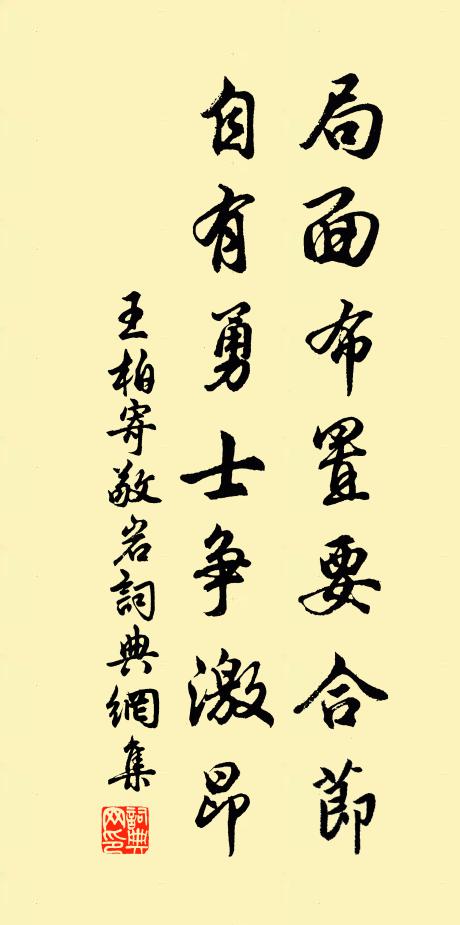 局面布置要合節
自有勇士争激昂
王柏寄敬岩詞典網集
詞典網印